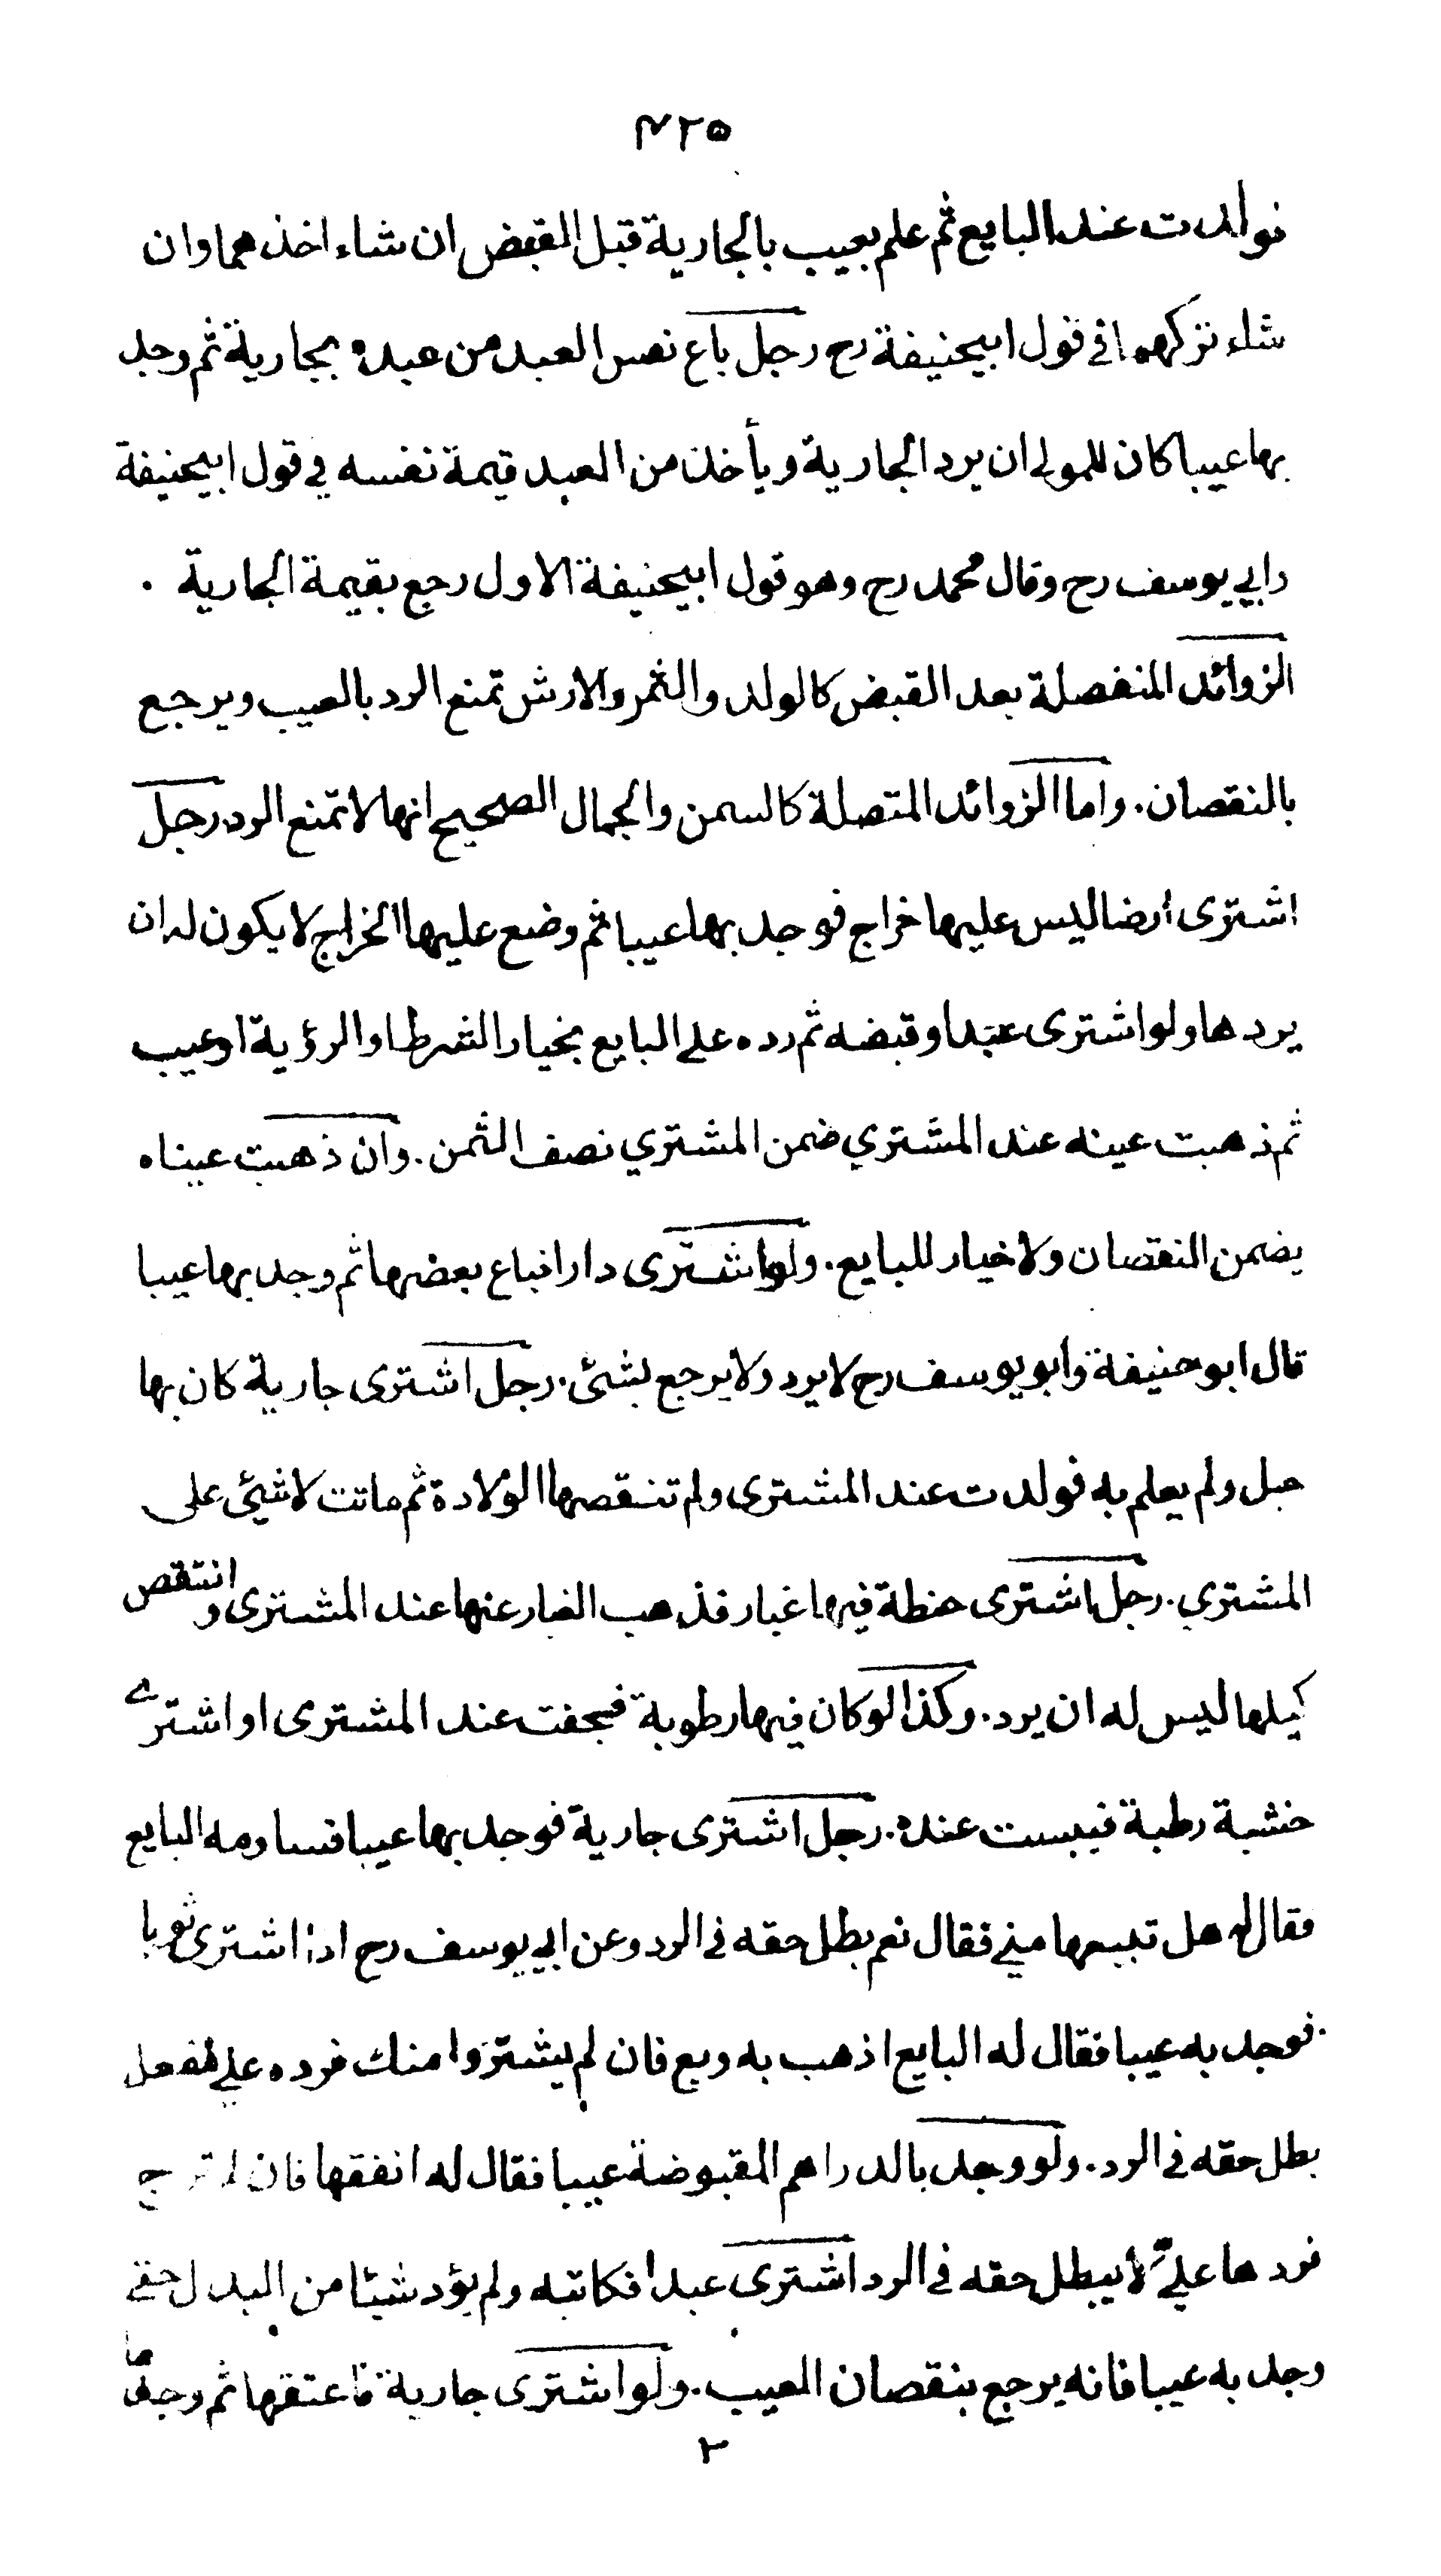 ٤٢٥
فولدت عند البايع ثم علم بعيب بالجارية قبل القبض ان شاء اخذ هما وان
شاء تركهما في قول ابيحنيفة رح رجل باع نفس العبد من عبده بجارية ثم وجد
بها عيبا كان للمولى ان يرد الجارية ويأخذ من العبد قيمة نفسه في قول ابيحنيفة
وابي يوسف رح وقال محمد رح وهو قول ابيحنيفة الاول رجع بقيمة الجارية .
الزوائد المنفصلة بعد القبض كالولد والثمر والارش تمنع الرد بالعيب ويرجع
بالنقصان. واما الزوائد المتصلة كالسمن والجمال الصحيح انها لا تمنع الرد رجل
اشترى أرضا ليس عليها خراج فوجد بها عيبا ثم وضع عليها الخراج لا يكون له ان
يردها ولو اشترى عبدا وقبضه ثم رده على البايع بخيار الشرط او الرؤية او عيب
ثم ذهبت عينه عند المشتري ضمن المشتري نصف الثمن. وان ذهبت عيناه
يضمن النقصان ولا خيار للبايع. ولو اشترى دارا فباع بعضها ثم وجد بها عيبا
قال ابو حنيفة وابو يوسف رح لا يرد ولا يرجع بشئ. رجل اشترى جارية كان بها
حبل ولم يعلم به فولدت عند المشترى ولم تنقصها الولادة ثم ماتت لا شئ على
المشتري. رجل اشترى حنطة فيها غبار فذهب الغبار عنها عند المشترى وانتقص
كيلها ليس له ان يرد. وكذا لو كان فيها رطوبة فجفت عند المشترى او اشترى
خشبة رطبة فيبست عنده. رجل اشترى جارية فوجد بها عيبا فساومه البايع
فقال له هل تبيعها مني فقال نعم بطل حقه في الرد وعن ابي يوسف رح اذا اشترى ثوبا
فوجد به عيبا فقال له البايع اذهب به وبع فان لم يشتروا منك فرده علي ففعل
بطل حقه في الرد. ولو وجد بالدراهم المقبوضة عيبا فقال له انفقها فان لم ترج
فردها عليّ لا يبطل حقه في الرد اشترى عبدا فكاتبه ولم يؤد شيئا من البدل حتى
وجد به عيبا فانه يرجع بنقصان العيب. ولو اشترى جارية فاعتقها ثم وجد بها
٢